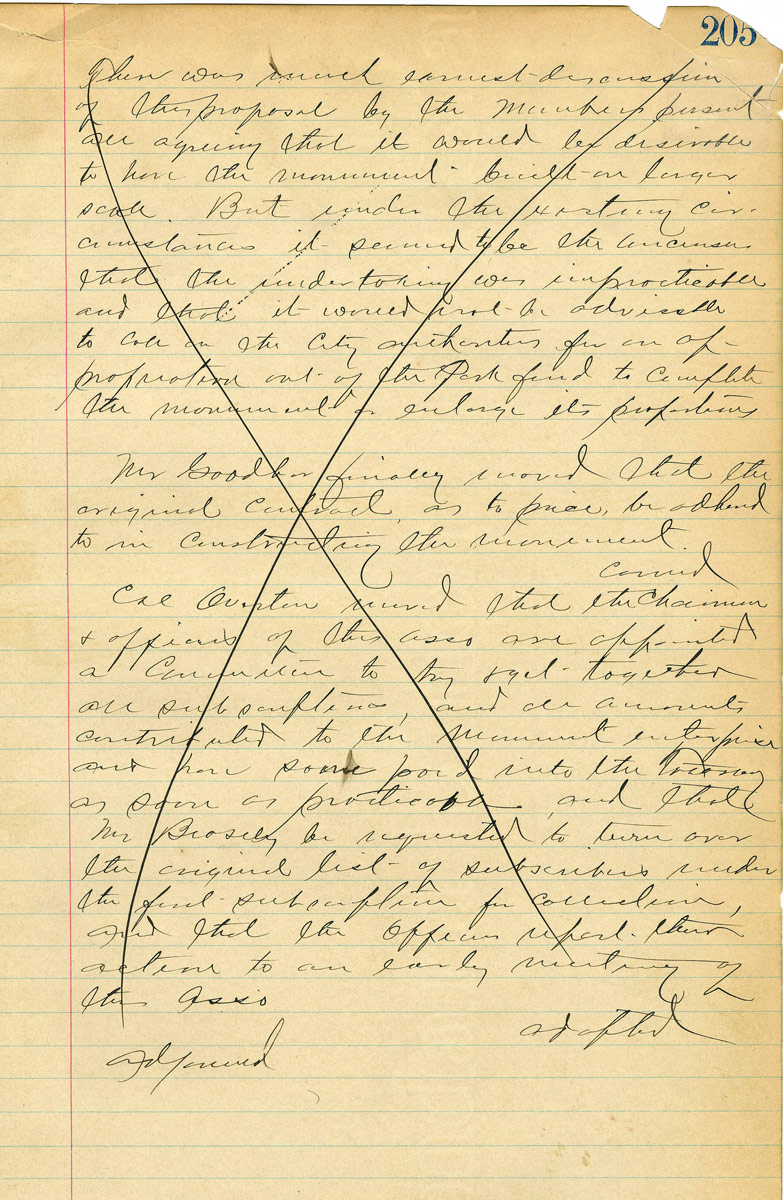 205
There was much earnest discussion
of this proposal by the Members present
all agreeing that it would be desirable
to have the monument built on larger
scale. But under the existing cir-
cumstances it seemed to be the
that the undertaking was impracticable
and that it would not be advisable
to call on the City authorities for an ap-
propriation out of the Park fund to complete
the monument or enlarge its proportions
Mr Goodbar finally moved that the
original contract, as to price, be adhered
to in constructing the monument.
carried
Col Overton moved that the Chairman
& officers of this Asso are appointed
a Committee to try & get together
all subscriptions, and all amounts
contributed to the Monument enterprise
and have same paid into the Treasury
as soon as practicable, and that
Mr Beasley be requested to turn over
the original list of subscribers under
the first subscription for collection,
and that the Officers report their
action to an early meeting of
this Asso
adopted
adjourned